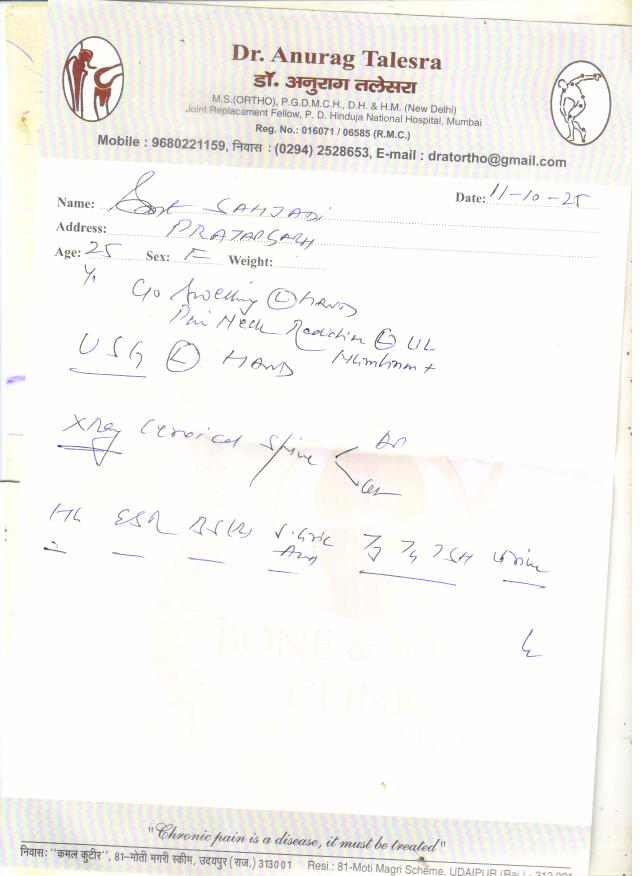 Dr. Anurag Talesra
डॉ. अनुराग तलेसरा
M.S.(ORTHO), P.G.D.M.C.H., D.H. & H.M. (New Delhi)
Joint Replacement Fellow, P. D. Hinduja National Hospital, Mumbai
Reg. No.: 016071 / 06585 (R.M.C.)
Mobile : 9680221159, निवास : (0294) 2528653, E-mail : dratortho@gmail.com
Name: SAHJADI Date: 11-10-25
Address: PRATAPGARH
Age: 25 Yr Sex: F Weight:
C/o Swelling (L) HAND
Pain Neck Radiation (L) UL
Numbness +
USG (L) HAND
XRay Cervical Spine < AP
Lat
Hb ESR BS(R) S. Uric Acid T3 T4 TSH Urine
BONE & JO
CLINIC
"Chronic pain is a disease, it must be treated"
निवास: "कमल कुटीर", 81-मोती मगरी स्कीम, उदयपुर (राज.) 313001 Resi.: 81-Moti Magri Scheme, UDAIPUR (Raj.) - 313 001